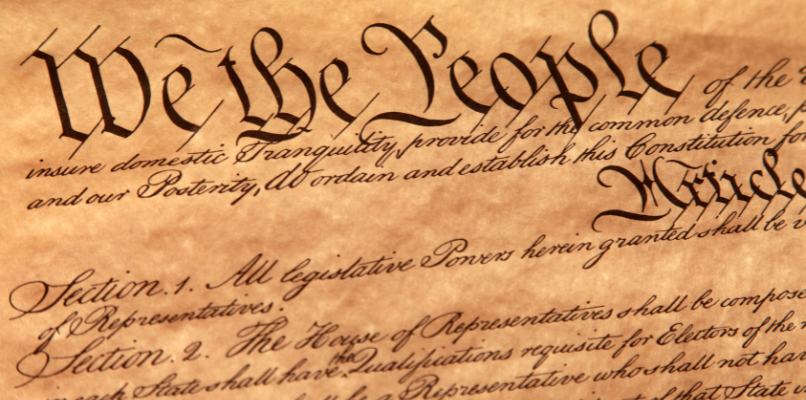 We the People of the
insure domestic Tranquility, provide for the common defence,
and our Posterity, do ordain and establish this Constitution for
Article
Section. 1. All legislative Powers herein granted shall be
of Representatives.
Section. 2. The House of Representatives shall be compose
the
in each State shall have Qualifications requisite for Electors of the
a Representative who shall not ha
of that State